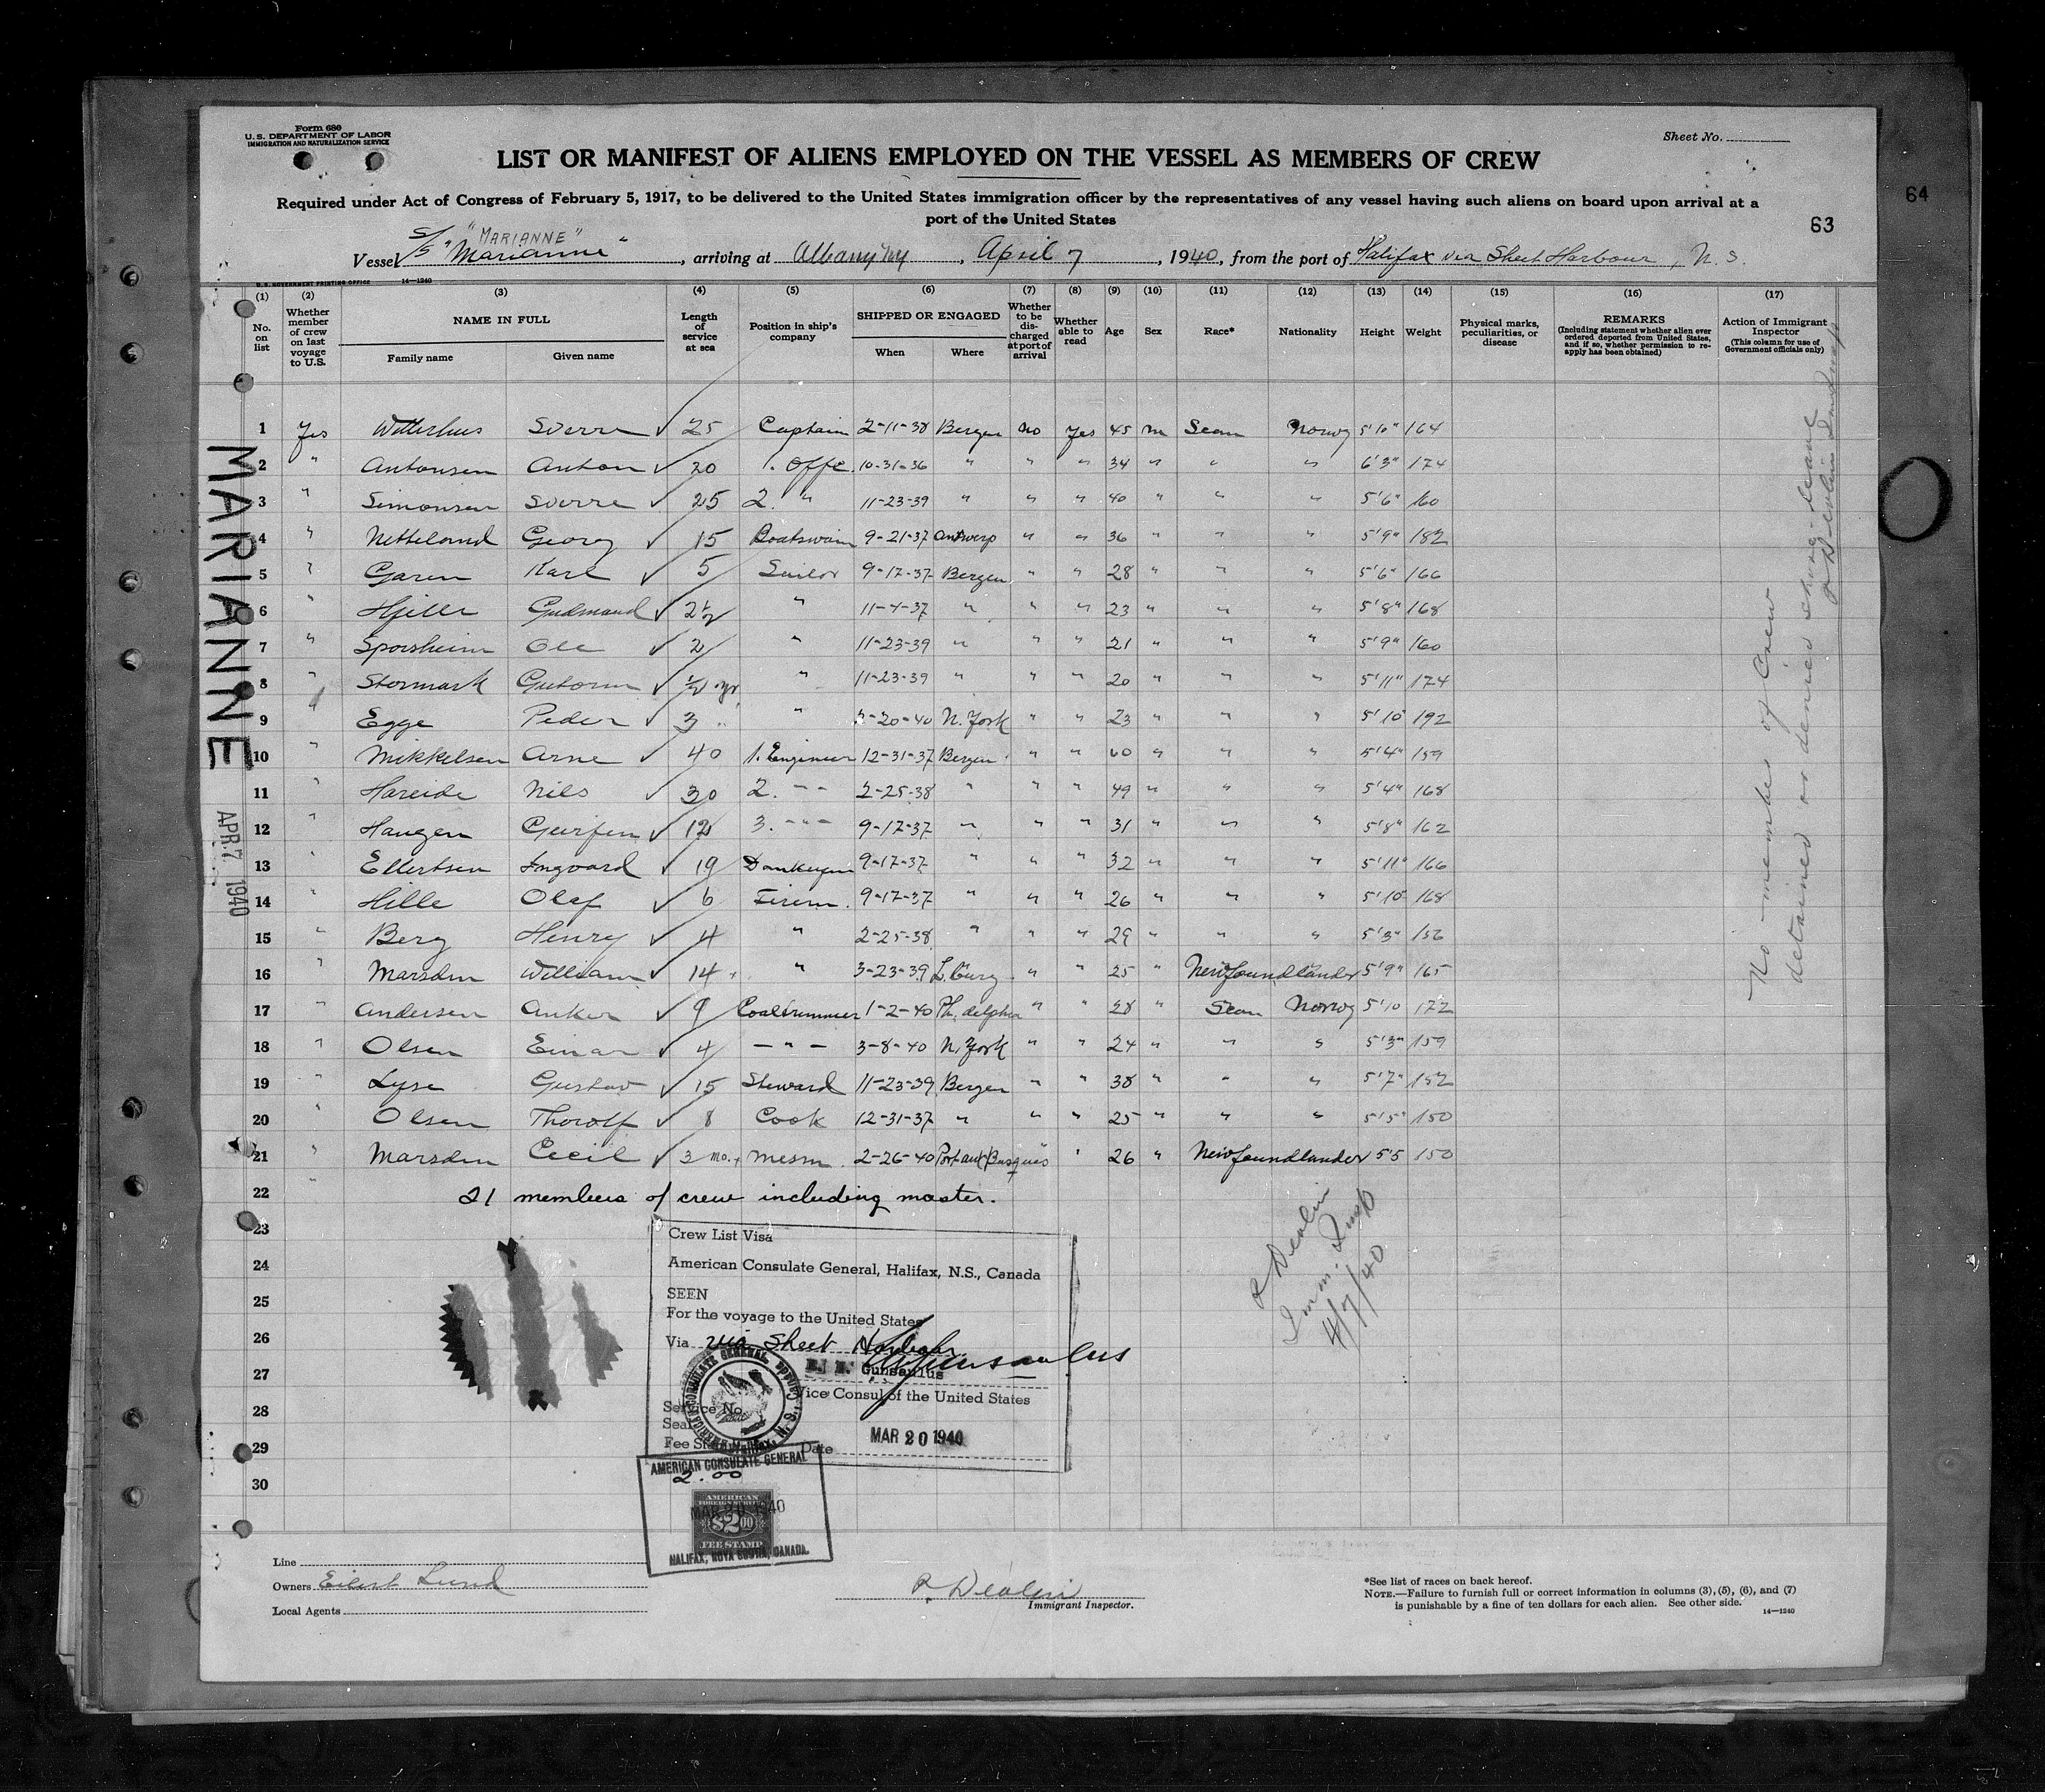 Form 680
U. S. DEPARTMENT OF LABOR
IMMIGRATION AND NATURALIZATION SERVICE
Sheet No.
LIST OR MANIFEST OF ALIENS EMPLOYED ON THE VESSEL AS MEMBERS OF CREW
Required under Act of Congress of February 5, 1917, to be delivered to the United States immigration officer by the representatives of any vessel having such aliens on board upon arrival at a
port of the United States
64
63
"MARIANNE"
Vessel S/S "Marianne", arriving at Albany NY, April 7, 1940, from the port of Halifax via Sheet Harbour, N. S.
U. S. GOVERNMENT PRINTING OFFICE 14—1240
(1) (2) (3) (4) (5) (6) (7) (8) (9) (10) (11) (12) (13) (14) (15) (16) (17)
No. on list
Whether member of crew on last voyage to U.S.
NAME IN FULL
Family name Given name
Length of service at sea
Position in ship's company
SHIPPED OR ENGAGED
When Where
Whether to be discharged at port of arrival
Whether able to read
Age
Sex
Race*
Nationality
Height
Weight
Physical marks, peculiarities, or disease
REMARKS
(Including statement whether alien ever ordered deported from United States, and if so, whether permission to re-apply has been obtained)
Action of Immigrant Inspector
(This column for use of Government officials only)
1 Yes Witterhus Sverre ✓ 25 Captain 2-11-38 Bergen no Yes 45 m Scan Norwg 5'10" 164
2 " Antonsen Anton ✓ 20 1. Offc. 10-31-36 " " " 34 " " " 6'3" 174
3 " Simonsen Sverre ✓ 25 2. " 11-23-39 " " " 40 " " " 5'6" 160
4 " Netteland Georg ✓ 15 Boatswain 9-21-37 Antwerp " " 36 " " " 5'9" 182
5 " Garen Karl ✓ 5 Sailor 9-17-37 Bergen " " 28 " " " 5'6" 166
6 " Hjelle Gudmand ✓ 2½ " 11-4-37 " " " 23 " " " 5'8" 168
7 " Sporsheim Ole ✓ 2 " 11-23-39 " " " 21 " " " 5'9" 160
8 " Stormark Gutorm ✓ ½ yr " 11-23-39 " " " 20 " " " 5'11" 174
9 " Egge Peder ✓ 3 " " -20-40 N. York " " 23 " " " 5'10 192
10 " Mikkelsen Arne ✓ 40 1. Engineer 12-31-37 Bergen " " 60 " " " 5'4" 159
11 " Hareide Nils ✓ 30 2. " 2-25-38 " " " 49 " " " 5'4" 168
12 " Haugen ✓ 12 3. " 9-17-37 " " " 31 " " " 5'8" 162
13 " Ellertsen Ingvard ✓ 19 Donkeym 9-17-37 " " " 32 " " " 5'11" 166
14 " Hille Olaf ✓ 6 Firem. 9-17-37 " " " 26 " " " 5'10 168
15 " Berg Henry ✓ 4 " 2-25-38 " " " 29 " " " 5'3" 156
16 " Marsden William ✓ 14 " 3-23-39 L.burg " " 25 " Newfoundlander 5'9" 165
17 " Andersen Anker ✓ 9 Coaltrimmer 1-2-40 Ph. delphia " " 28 " Scan Norwg 5'10 172
18 " Olsen Einar ✓ 4 — " — 3-8-40 N. York " " 24 " " " 5'3" 159
19 " Lyse Gustav ✓ 15 Steward 11-23-39 Bergen " " 38 " " " 5'7" 152
20 " Olsen Thorolf ✓ 8 Cook 12-31-37 " " " 25 " " " 5'5" 150
21 " Marsden Cecil ✓ 3 mo. mesm. 2-26-40 Port aux Basques " 26 " Newfoundlander 5'5 150
22 " 21 members of crew including master.
23
24
25
26
27
28
29
30
MARIANNE
APR 7 1940
No member of Crew
detained or denied shore leave
P Devlin Imm Insp
P Devlin
Imm. Insp
4/7/40
Crew List Visa
American Consulate General, Halifax, N.S., Canada
SEEN
For the voyage to the United States
Via via Sheet Harbour
Gunsaulus
Vice Consul of the United States
Service No.
Seal
Fee Stamp
Date MAR 20 1940
AMERICAN CONSULATE GENERAL
2.00
MAR 20 1940
AMERICAN
FOREIGN SERVICE
$2.00
FEE STAMP
HALIFAX, NOVA SCOTIA, CANADA.
Line
Owners Eilert Lund
Local Agents
P. Devlin
Immigrant Inspector.
*See list of races on back hereof.
NOTE.—Failure to furnish full or correct information in columns (3), (5), (6), and (7)
is punishable by a fine of ten dollars for each alien. See other side.
14—1240